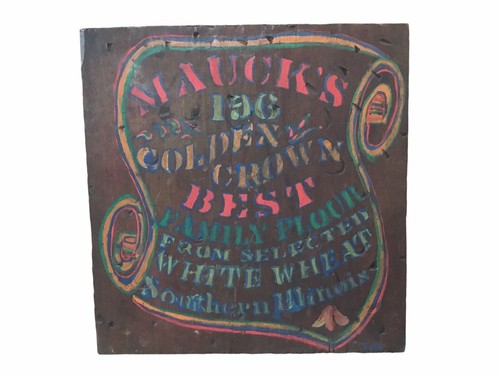 MAUCK'S
196
GOLDEN
CROWN
BEST
FAMILY FLOUR
FROM SELECTED
WHITE WHEAT
Southern Illinois